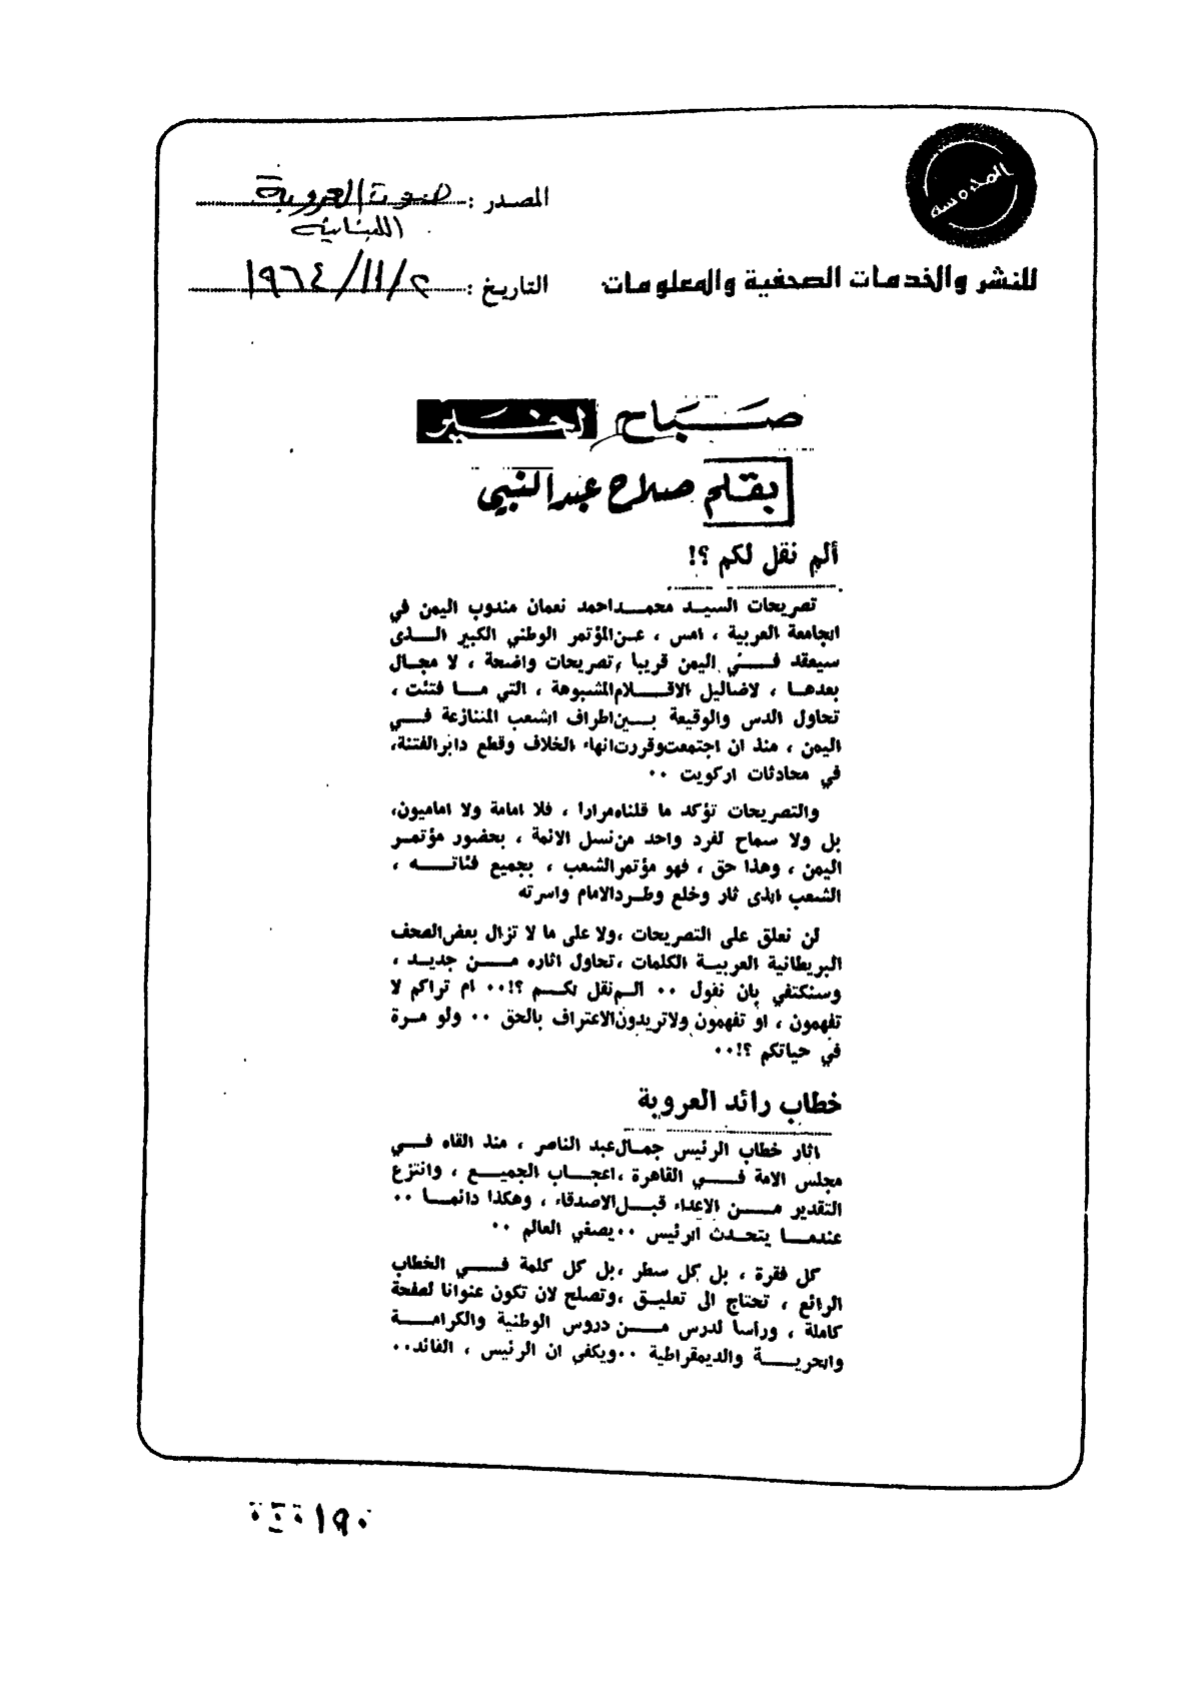 المحروسة
للنشر والخدمات الصحفية والمعلومات
المصدر : صوت العروبة
اللبنانية
التاريخ : ٢/١١/١٩٦٤
صباح الخير
بقلم صلاح عبدالنبي
ألم نقل لكم ؟!
تصريحات السيد محمد احمد نعمان مندوب اليمن في
الجامعة العربية ، امس ، عن المؤتمر الوطني الكبير الذى
سيعقد في اليمن قريبا ، تصريحات واضحة ، لا مجال
بعدها ، لاضاليل الاقلام المشبوهة ، التي ما فتئت ،
تحاول الدس والوقيعة بين اطراف الشعب المتنازعة في
اليمن ، منذ ان اجتمعت وقررت انهاء الخلاف وقطع دابر الفتنة،
في محادثات اركويت ..
والتصريحات تؤكد ما قلناه مرارا ، فلا امامة ولا اماميون،
بل ولا سماح لفرد واحد من نسل الائمة ، بحضور مؤتمر
اليمن ، وهذا حق ، فهو مؤتمر الشعب ، بجميع فئاته ،
الشعب الذى ثار وخلع وطرد الامام واسرته
لن نعلق على التصريحات ، ولا على ما لا تزال بعض الصحف
البريطانية العربية الكلمات ، تحاول اثاره من جديد ،
وسنكتفي بان نقول .. الم نقل لكم ؟!.. ام تراكم لا
تفهمون ، او تفهمون ولا تريدون الاعتراف بالحق .. ولو مرة
في حياتكم ؟!..
خطاب رائد العروبة
اثار خطاب الرئيس جمال عبد الناصر ، منذ القاه في
مجلس الامة في القاهرة ، اعجاب الجميع ، وانتزع
التقدير من الاعداء قبل الاصدقاء ، وهكذا دائما ..
عندما يتحدث الرئيس .. يصغي العالم ..
كل فقرة ، بل كل سطر ، بل كل كلمة في الخطاب
الرائع ، تحتاج الى تعليق ، وتصلح لان تكون عنوانا لصفحة
كاملة ، ورأسا لدرس من دروس الوطنية والكرامة
والحرية والديمقراطية .. ويكفي ان الرئيس ، القائد..